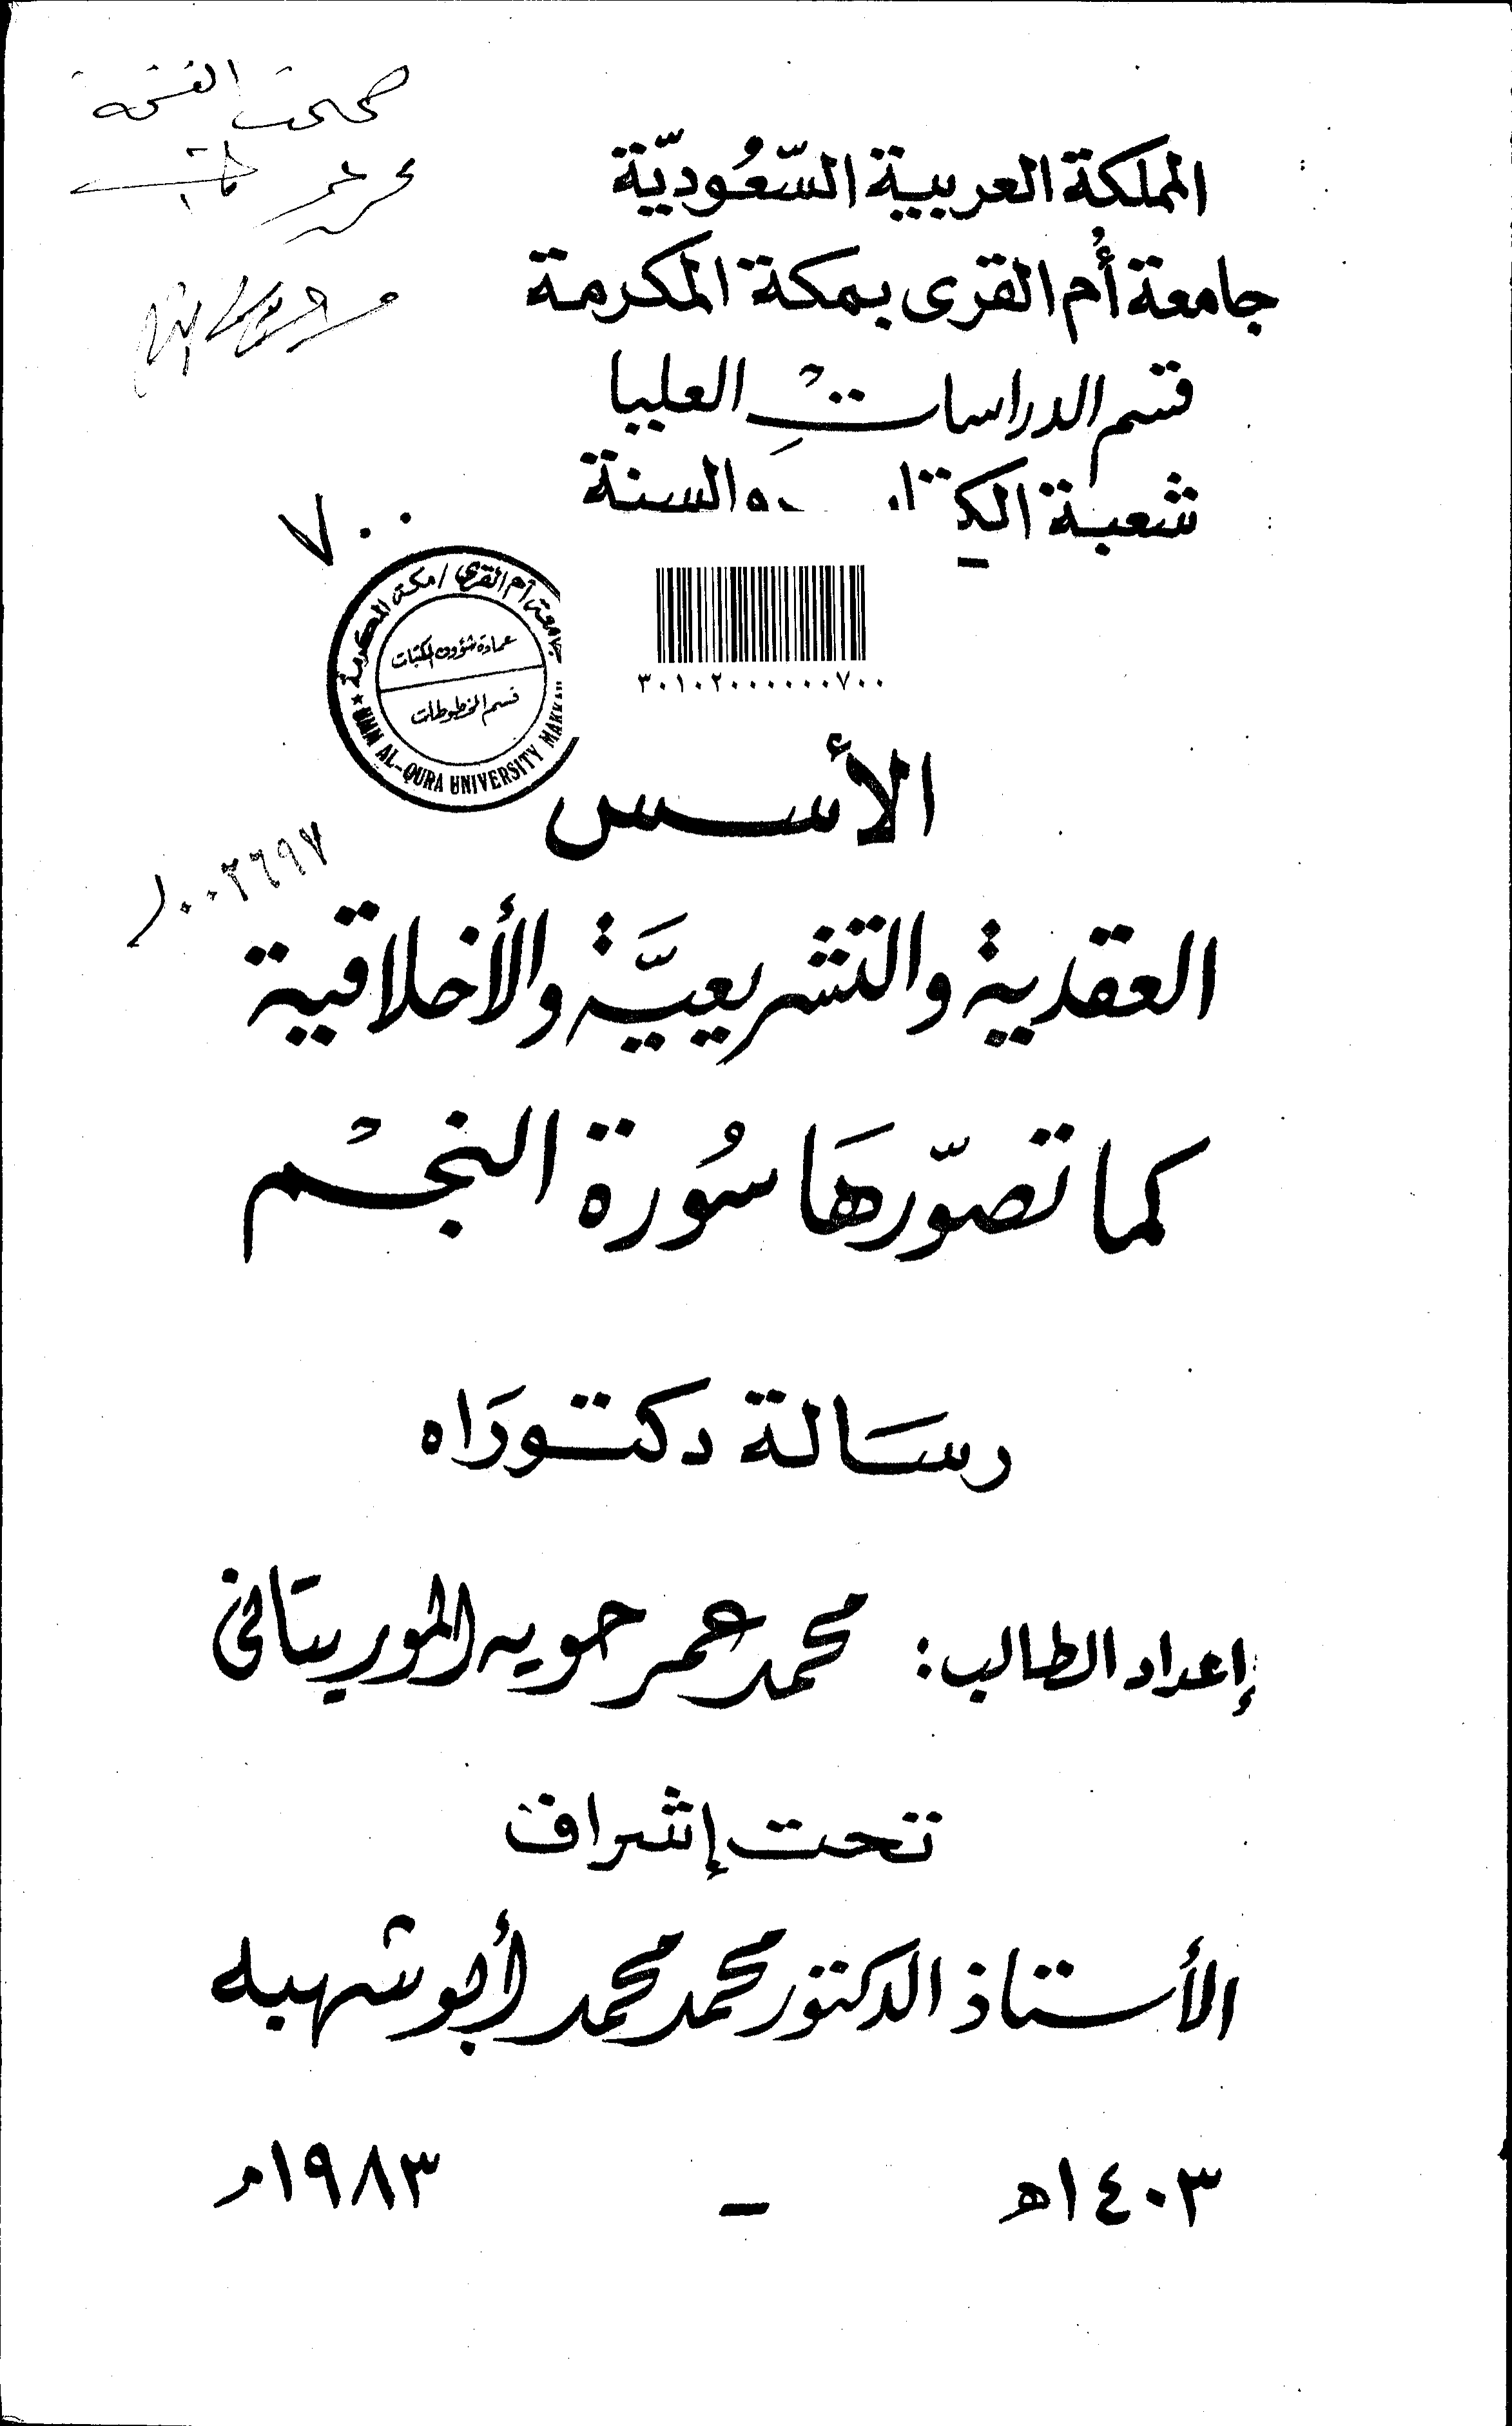 صححت النسخة
محمد عمر
المملكة العربية السّعُوديّة
جامعة أُم القرى بمكة المكرمة
قسم الدراساتْ العليا
شعبة الكتا والسنة
٧٠٠
جامعة أم القرى / مكة المكرمة
عمادة شؤون المكتبات
قسم المخطوطات
UMM AL-QURA UNIVERSITY MAKKAH
٣٠١٠٢٠٠٠٠٠٠٧٠٠
الأسس
١٠٠٢٦٩٧
العقدية والتشريعيَّة والأخلاقية
كما تصوّرهَا سُورة النجْم
رسَالة دكتورَاه
إعداد الطالب: محمد عمر حويه الموريتَانى
تحت إشراف
الأستاذ الدكتور محمد محمد أبو شهبه
١٤٠٣ه - ١٩٨٣م